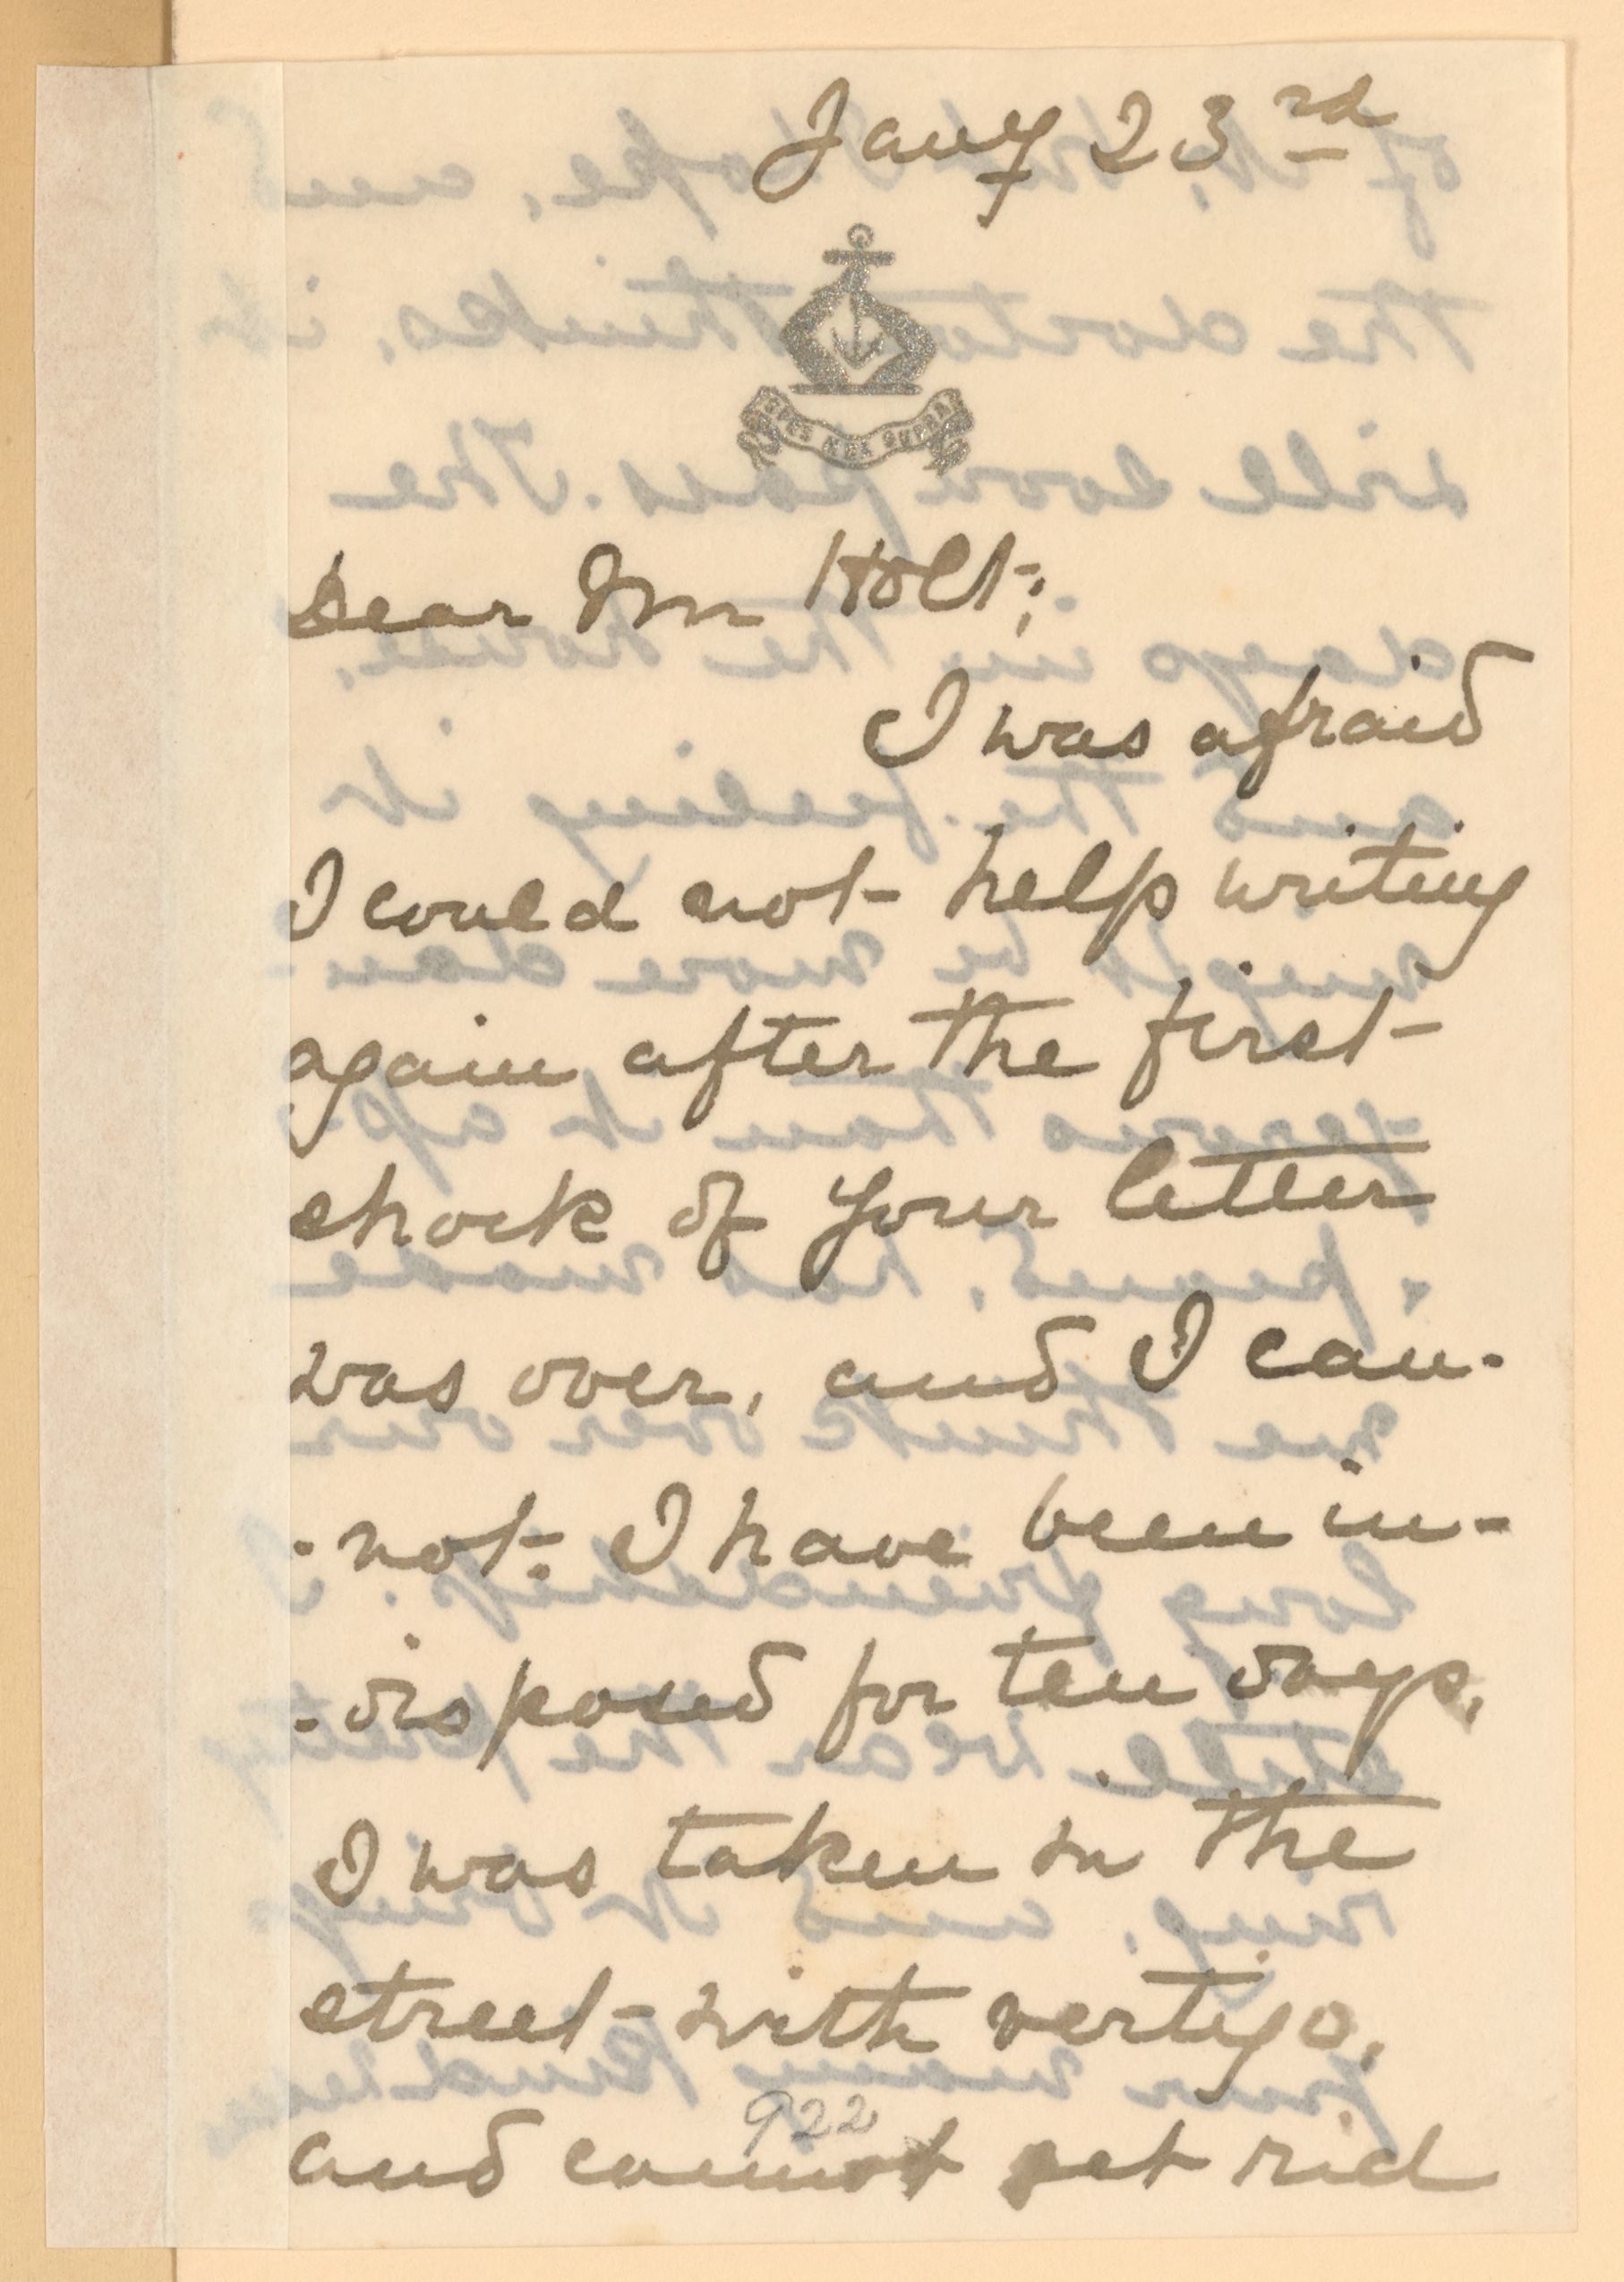 Jany 23rd
Dear Mr Holt;
I was afraid
I could not help writing
again after the first
shock of your letter
was over, and I can-
-not. I have been in-
-disposed for ten days,
I was taken in the
street with vertigo,
922
and cannot get rid